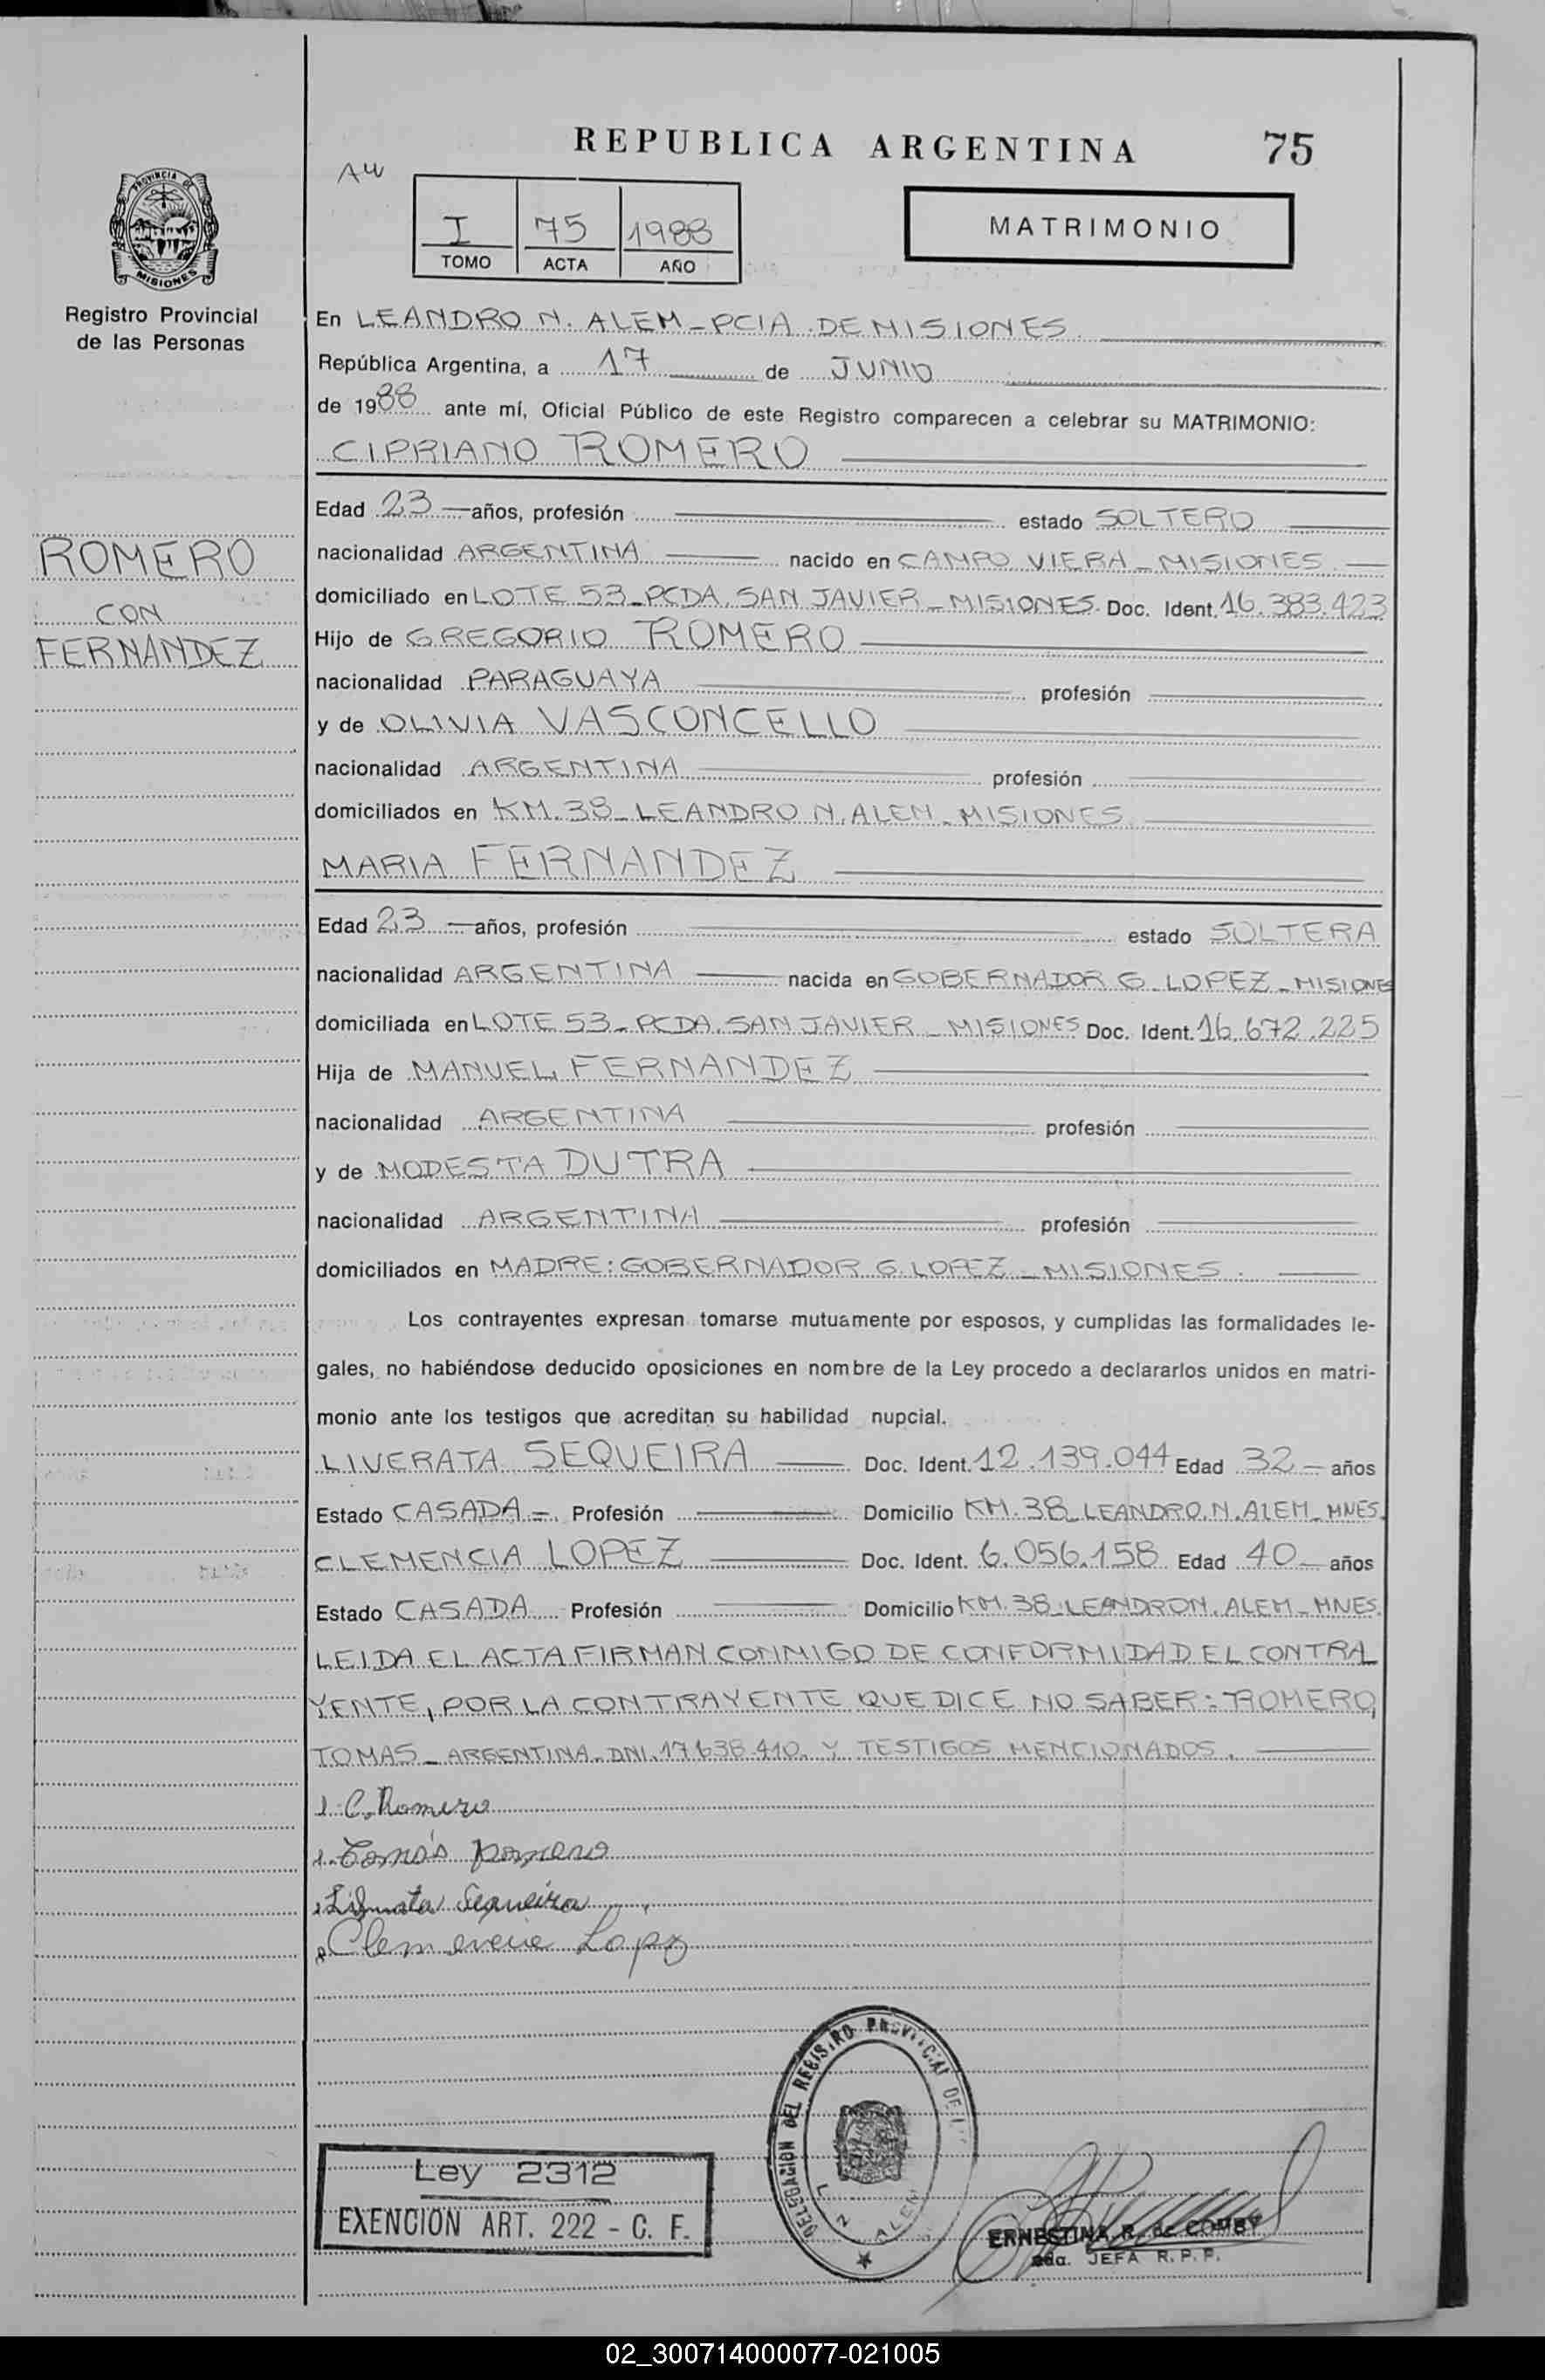 REPUBLICA ARGENTINA 75
PROVINCIA DE
MISIONES
Registro Provincial
de las Personas
I 75 1988
TOMO ACTA AÑO
MATRIMONIO
En LEANDRO N. ALEM - PCIA. DE MISIONES
República Argentina, a 17 de JUNIO
de 1988 ante mí, Oficial Público de este Registro comparecen a celebrar su MATRIMONIO:
CIPRIANO ROMERO
Edad 23 — años, profesión — estado SOLTERO
ROMERO
CON
FERNANDEZ
nacionalidad ARGENTINA — nacido en CAMPO VIERA - MISIONES. —
domiciliado en LOTE 53 - PCDA. SAN JAVIER - MISIONES. Doc. Ident. 16.383.423
Hijo de GREGORIO ROMERO
nacionalidad PARAGUAYA — profesión —
y de OLIVIA VASCONCELLO
nacionalidad ARGENTINA — profesión —
domiciliados en KM. 38 - LEANDRO N. ALEM - MISIONES.
MARIA FERNANDEZ
Edad 23 — años, profesión — estado SOLTERA
nacionalidad ARGENTINA — nacida en GOBERNADOR G. LOPEZ - MISIONES
domiciliada en LOTE 53 - PCDA. SAN JAVIER - MISIONES Doc. Ident. 16.672.225
Hija de MANUEL FERNANDEZ
nacionalidad ARGENTINA — profesión —
y de MODESTA DUTRA
nacionalidad ARGENTINA — profesión —
domiciliados en MADRE: GOBERNADOR G. LOPEZ - MISIONES. —
Los contrayentes expresan tomarse mutuamente por esposos, y cumplidas las formalidades le-
gales, no habiéndose deducido oposiciones en nombre de la Ley procedo a declararlos unidos en matri-
monio ante los testigos que acreditan su habilidad nupcial.
LIVERATA SEQUEIRA — Doc. Ident. 12.139.044 Edad 32 — años
Estado CASADA =. Profesión — Domicilio KM. 38 - LEANDRO. N. ALEM - MNES.
CLEMENCIA LOPEZ — Doc. Ident. 6.056.158 Edad 40 — años
Estado CASADA Profesión — Domicilio KM. 38 - LEANDRO N. ALEM - MNES.
LEIDA EL ACTA FIRMAN CONMIGO DE CONFORMIDAD EL CONTRA
YENTE, POR LA CONTRAYENTE QUE DICE NO SABER: ROMERO,
TOMAS - ARGENTINA - DNI. 17.638.410. Y TESTIGOS MENCIONADOS. —
C. Romero
Tomás Romero
Sequeira
Lopz
DELEGACION DEL REGISTRO PROVINCIAL DE
L. N. ALEM
Ley 2312
EXENCION ART. 222 - C. F.
ERNESTINA R. de COMBY
2da. JEFA R. P. P.
02_300714000077-021005